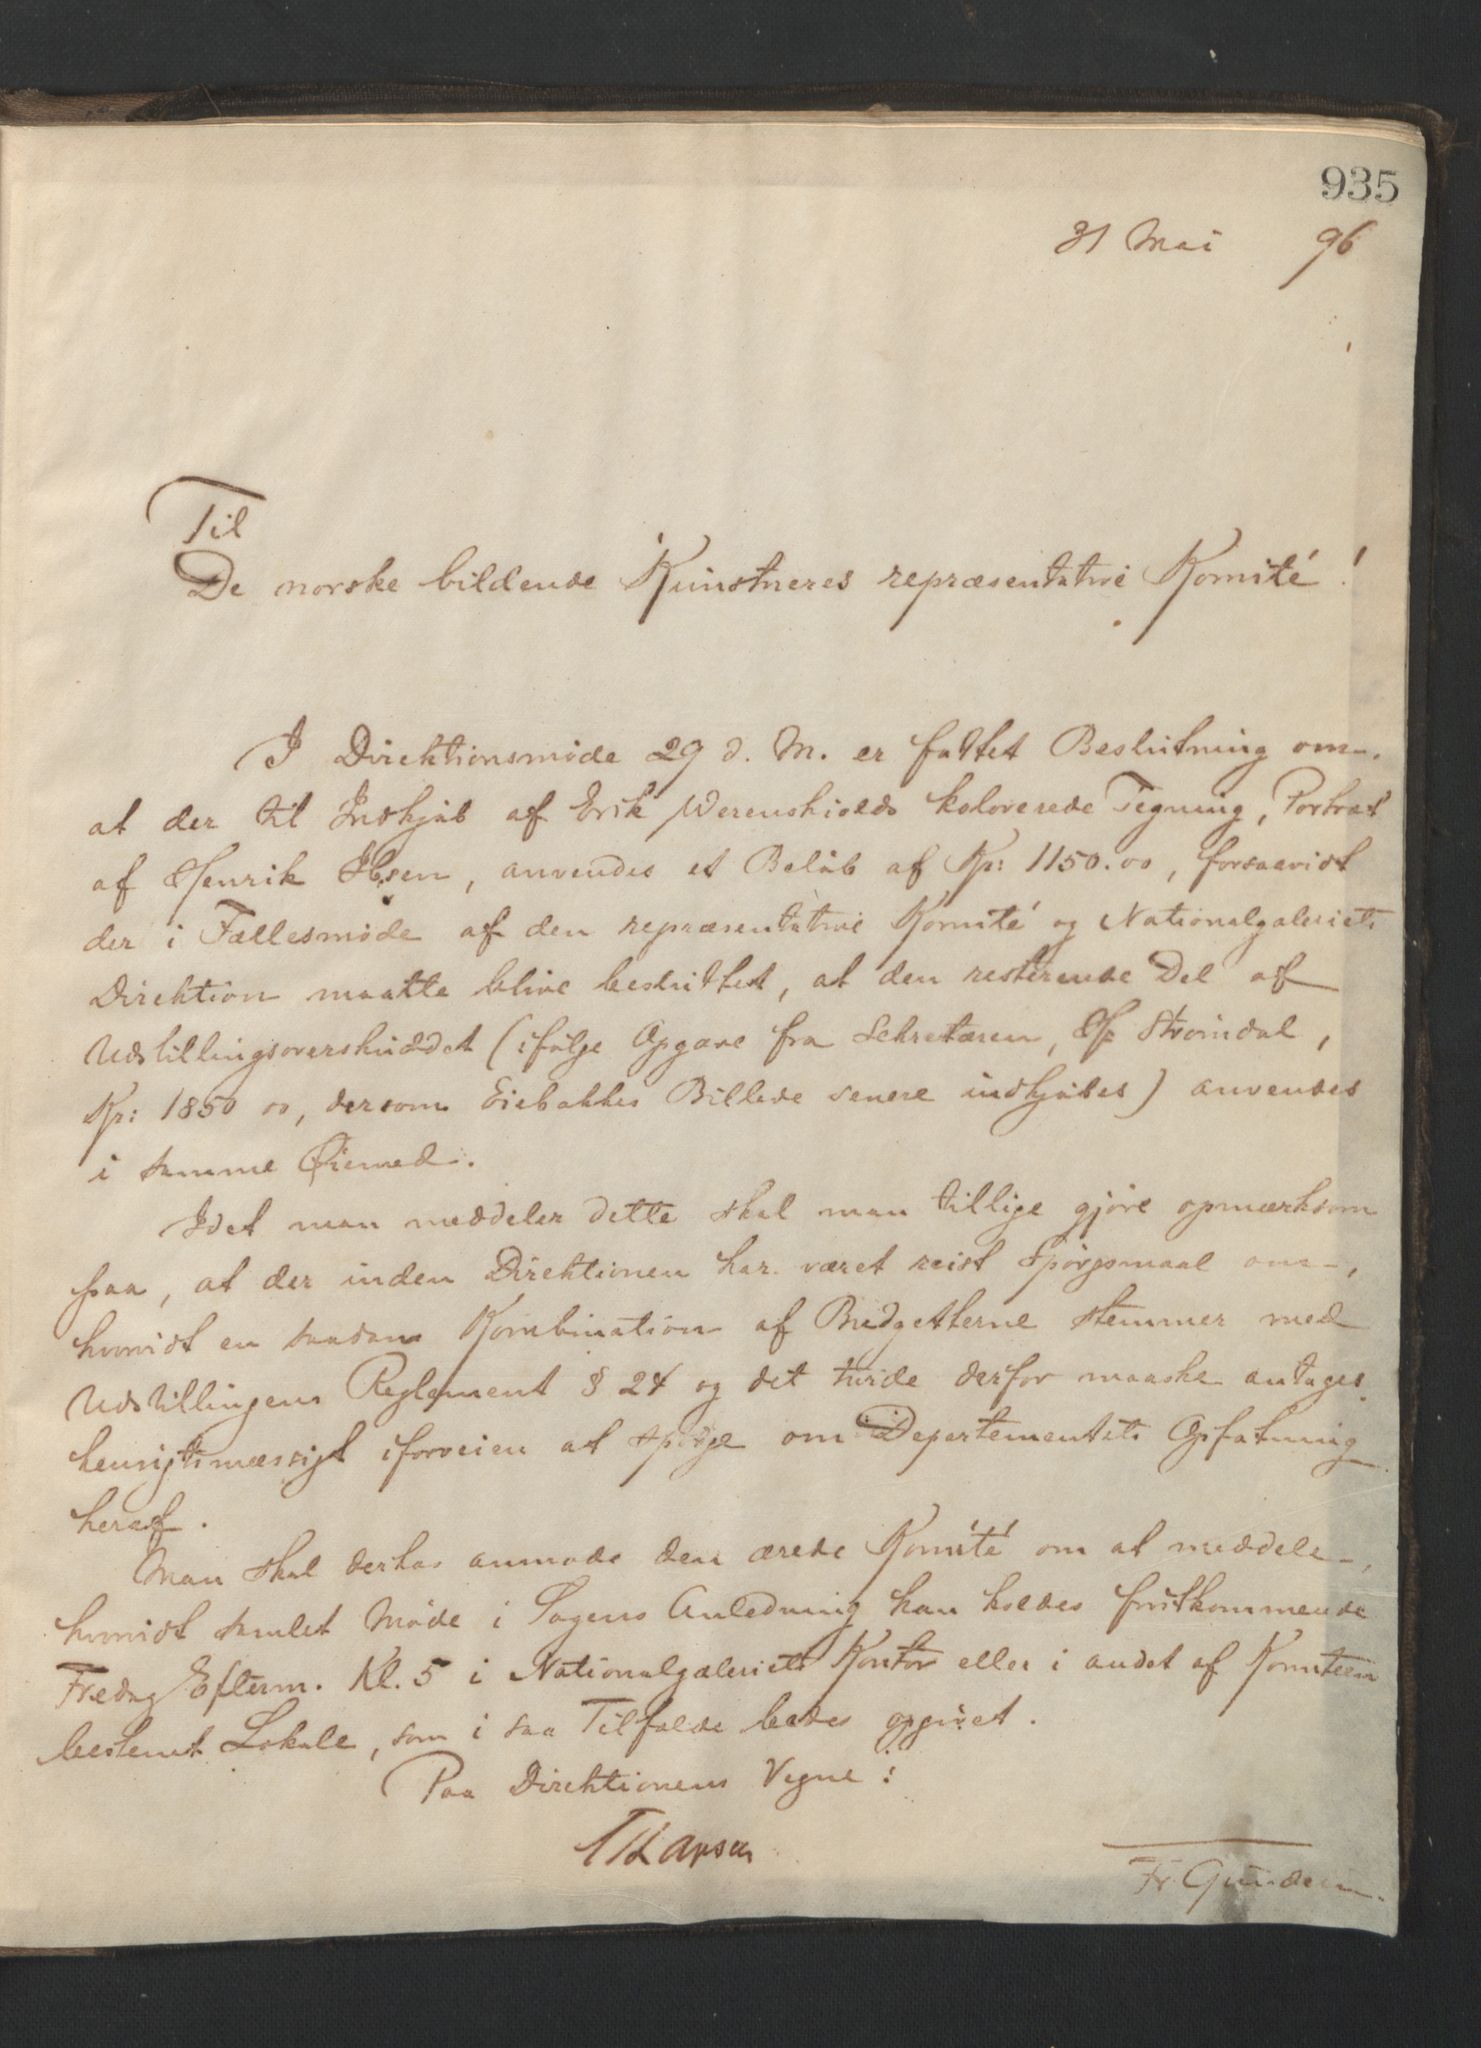 935
31 Mai 96
Til
De norske bildende Kunstneres repræsentative Komité!
I Direktionsmøde 29 d. M. er fattet Beslutning om,
at der til Indkjøb af Erik Werenskiolds kolorerede Tegning, Portræt
af Henrik Ibsen, anvendes et Beløb af Kr: 1150.00, forsaavidt
der i Fællesmøde af den repræsentative Komité og Nationalgaleriets
Direktion maatte blive besluttet, at den resterende Del af
Udstillingsoverskuddet (ifølge Opgave fra Sekretæren, Hr Strømdal,
Kr: 1850 00, dersom Eiebakkes Billede senere indkjøbes) anvendes
i samme Øiemed.
Idet man meddeler dette skal man tillige gjøre opmærksom
paa, at der inden Direktionen har været reist Spørgsmaal om,
hvorvidt en saadan Kombination af Budgetterne stemmer med
Udstillingens Reglement § 24 og det turde derfor maaske antages
hensigtsmæssigt iforveien at spørge om Departementets Opfatning
heraf.
Man skal derhos anmode den ærede Komité om at meddele,
hvorvidt samlet Møde i Sagens Anledning kan holdes førstkommende
Fredag Efterm. Kl. 5 i Nationalgaleriets Kontor eller i andet af Komiteen
bestemt Lokale, som i saa Tilfælde bedes opgivet.
Paa Direktionens Vegne:
Fr.